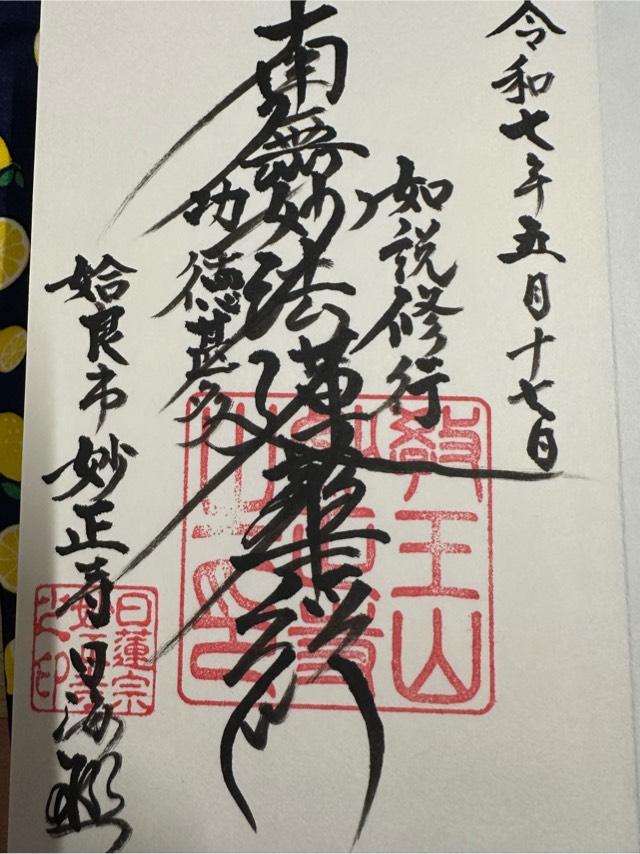 令和七年五月十七日
如説修行
南無妙法蓮華経
功徳甚多
姶良市妙正寺日
教王山
妙正寺
之印
日蓮宗
妙正寺
之印